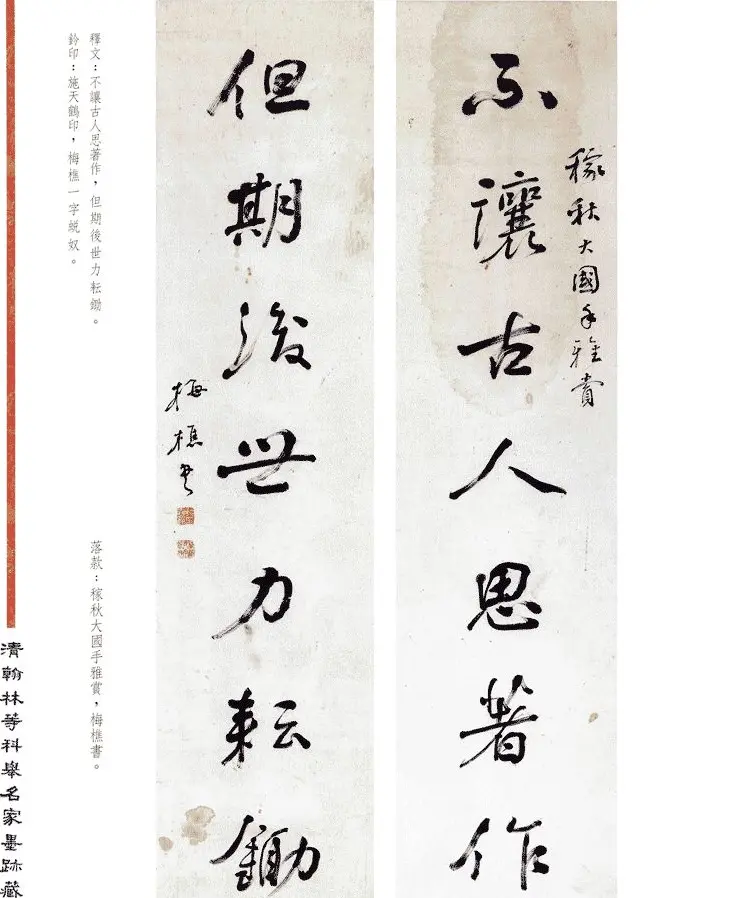 稼秋大國手雅賞
不讓古人思著作
但期後世力耘鋤
梅樵書
釋文：不讓古人思著作，但期後世力耘鋤。
落款：稼秋大國手雅賞，梅樵書。
鈐印：施天鶴印，梅樵一字蛻奴。
清翰林等科舉名家墨跡藏